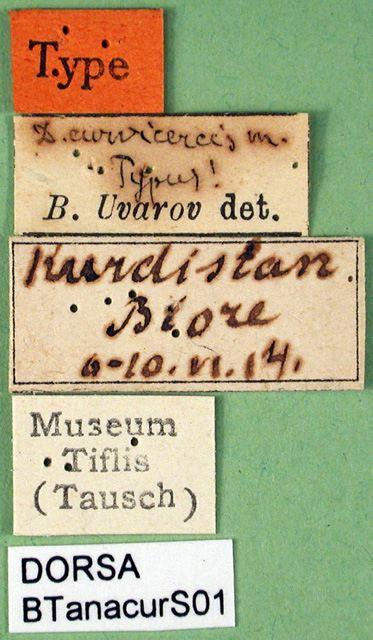 Type
D. curvicercis m.
Typus!
B. Uvarov det.
Kurdistan.
Biore
6-10.VI.14.
Museum
Tiflis
(Tausch)
DORSA
BTanacurS01